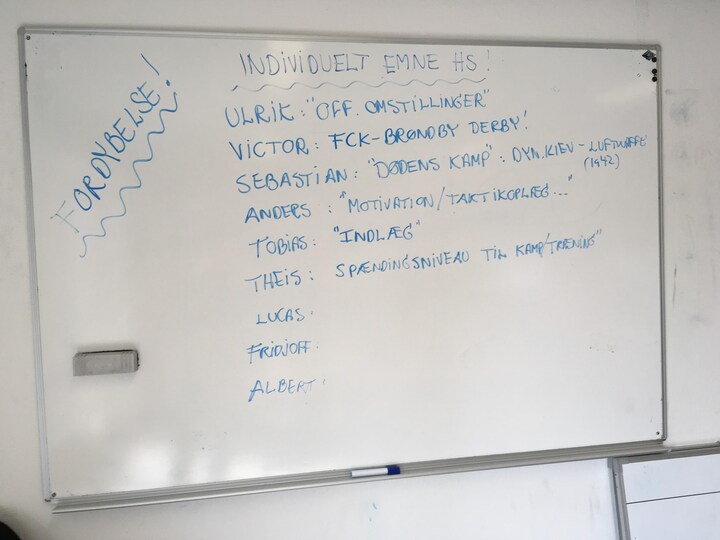 FORDYBELSE!
INDIVIDUELT EMNE HS!
ULRIK: "OFF. OMSTILLINGER"
VICTOR: FCK-BRØNDBY DERBY!
SEBASTIAN: "DØDENS KAMP": DYN. KIEV - LUFTWAFFE
(1942)
ANDERS: "MOTIVATION/TAKTIKOPLÆG..."
TOBIAS: "INDLÆG"
THEIS: SPÆNDINGSNIVEAU TIL KAMP/TRÆNING"
LUCAS.
FRIDJOFF.
ALBERT.